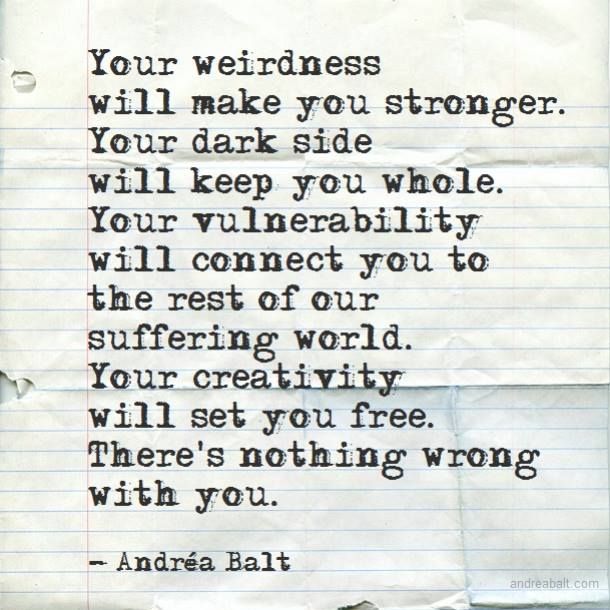 Your weirdness
will make you stronger.
Your dark side
will keep you whole.
Your vulnerability
will connect you to
the rest of our
suffering world.
Your creativity
will set you free.
There's nothing wrong
with you.
– Andréa Balt
andreabalt.com